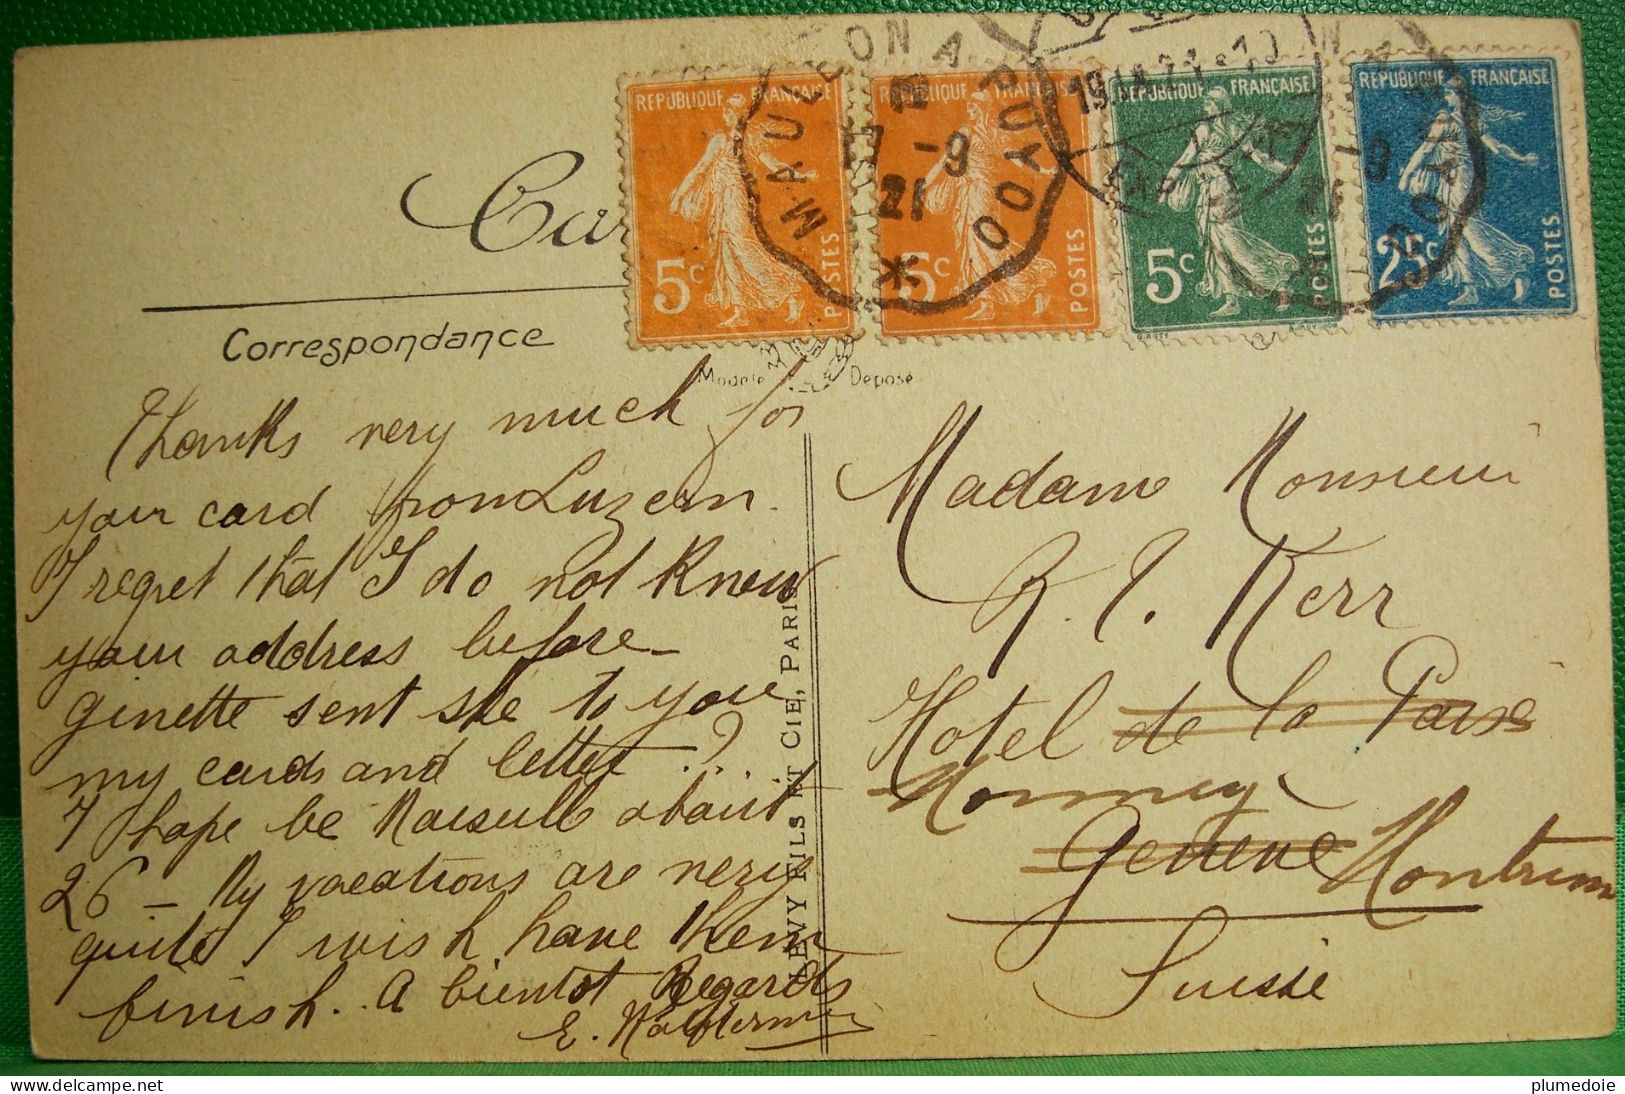 REPUBLIQUE FRANÇAISE 5c POSTES
REPUBLIQUE FRANÇAISE 5c POSTES
REPUBLIQUE FRANÇAISE 5c POSTES
REPUBLIQUE FRANÇAISE 25c POSTES
MAULEON A PUYOO
17 -9
21
Car
Correspondance
Modèle Déposé
Thanks very much for
your card from Luzern.
I regret that I do not Knew
your address before_
ginette sent she to you
my cards and letter ?...
I hope be Marseille about
26 _ My vacations are very
quite I wish have them
finish. A bientot Regards
E.
LEVY FILS ET CIE, PARIS
Madame Monsieur
R. Kerr
Hotel de la Paix
Monney
Genève Montreux
Suisse
plumedoie